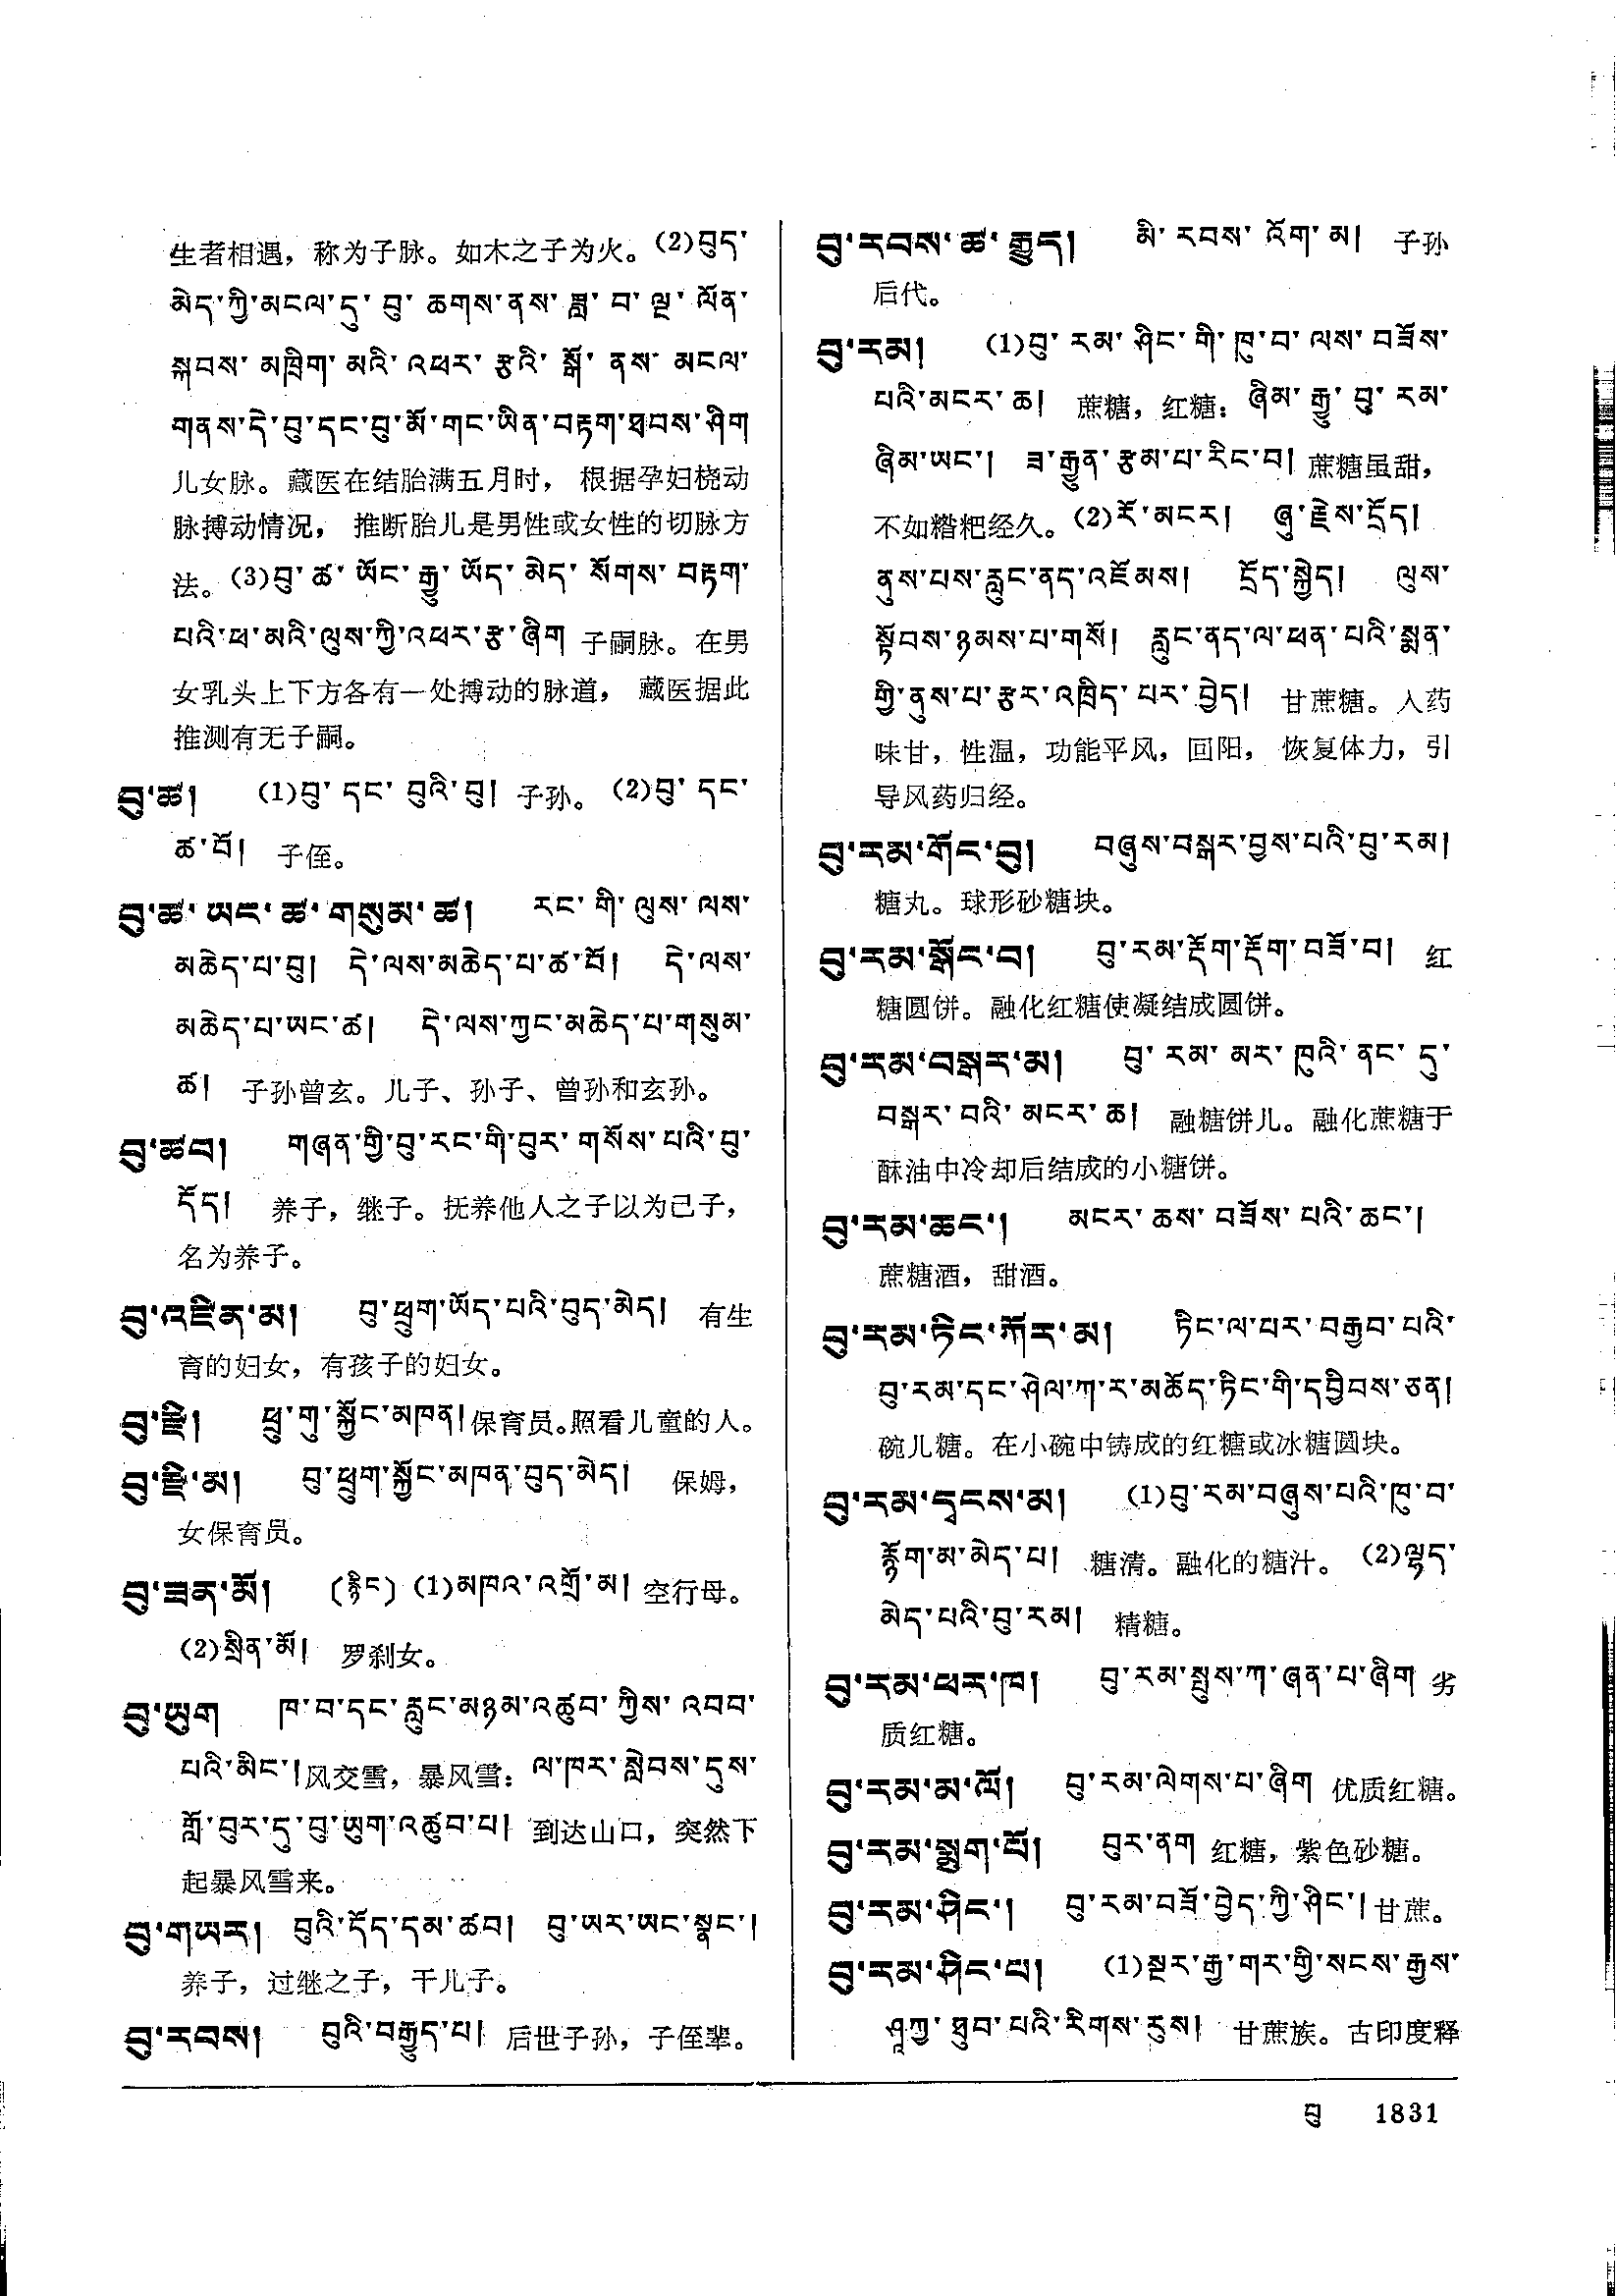 生者相遇，称为子脉。如木之子为火。(2)བུད་
མེད་ཀྱི་མངལ་དུ་བུ་ཆགས་ནས་ཟླ་བ་ལྔ་ལོན་
སྐབས་མཁྲིག་མའི་འཕར་རྩའི་སྒོ་ནས་མངལ་
གནས་དེ་བུ་དང་བུ་མོ་གང་ཡིན་བརྟག་ཐབས་ཤིག
儿女脉。藏医在结胎满五月时，根据孕妇桡动
脉搏动情况，推断胎儿是男性或女性的切脉方
法。(3)བུ་ཚ་ཡོང་རྒྱུ་ཡོད་མེད་སོགས་བརྟག་
པའི་ཕ་མའི་ལུས་ཀྱི་འཕར་རྩ་ཞིག 子嗣脉。在男
女乳头上下方各有一处搏动的脉道，藏医据此
推测有无子嗣。
བུ་ཚ། (1)བུ་དང་བུའི་བུ། 子孙。(2)བུ་དང་
ཚ་བོ། 子侄。
བུ་ཚ་ཡང་ཚ་གསུམ་ཚ། རང་གི་ལུས་ལས་
མཆེད་པ་བུ། དེ་ལས་མཆེད་པ་ཚ་བོ། དེ་ལས་
མཆེད་པ་ཡང་ཚ། དེ་ལས་ཀྱང་མཆེད་པ་གསུམ་
ཚ། 子孙曾玄。儿子、孙子、曾孙和玄孙。
བུ་ཚབ། གཞན་གྱི་བུ་རང་གི་བུར་གསོས་པའི་བུ་
དོད། 养子，继子。抚养他人之子以为己子，
名为养子。
བུ་འཛིན་མ། བུ་ཕྲུག་ཡོད་པའི་བུད་མེད། 有生
育的妇女，有孩子的妇女。
བུ་རྫི། ཕྲུ་གུ་སྐྱོང་མཁན།保育员。照看儿童的人。
བུ་རྫི་མ། བུ་ཕྲུག་སྐྱོང་མཁན་བུད་མེད། 保姆，
女保育员。
བུ་ཟན་མོ། (རྙིང) (1)མཁའ་འགྲོ་མ། 空行母。
(2)སྲིན་མོ། 罗刹女。
བུ་ཡུག ཁ་བ་དང་རླུང་མཉམ་འཚུབ་ཀྱིས་འབབ་
པའི་མིང་།风交雪，暴风雪：ལ་ཁར་སླེབས་དུས་
གློ་བུར་དུ་བུ་ཡུག་འཚུབ་པ། 到达山口，突然下
起暴风雪来。
བུ་གཡར། བུའི་དོད་དམ་ཚབ། བུ་ཡར་ཡང་སྣང་།
养子，过继之子，干儿子。
བུ་རབས། བུའི་བརྒྱུད་པ། 后世子孙，子侄辈。
བུ་རབས་ཚ་རྒྱུད། མི་རབས་འོག་མ། 子孙
后代。
བུ་རམ། (1)བུ་རམ་ཤིང་གི་ཁུ་བ་ལས་བཟོས་
པའི་མངར་ཆ། 蔗糖，红糖：ཞིམ་རྒྱུ་བུ་རམ་
ཞིམ་ཡང་། ཟ་རྒྱུན་རྩམ་པ་རིང་བ། 蔗糖虽甜，
不如糌粑经久。(2)རོ་མངར། ཞུ་རྗེས་དྲོད།
ནུས་པས་རླུང་ནད་འཇོམས། དྲོད་སྐྱེད། ལུས་
སྟོབས་ཉམས་པ་གསོ། རླུང་ནད་ལ་ཕན་པའི་སྨན་
གྱི་ནུས་པ་རྩར་འཁྲིད་པར་བྱེད། 甘蔗糖。入药
味甘，性温，功能平风，回阳，恢复体力，引
导风药归经。
བུ་རམ་གོང་བུ། བཞུས་བསྒར་བྱས་པའི་བུ་རམ།
糖丸。球形砂糖块。
བུ་རམ་སྒོང་བ། བུ་རམ་རྡོག་རྡོག་བཟོ་བ། 红
糖圆饼。融化红糖使凝结成圆饼。
བུ་རམ་བསྒར་མ། བུ་རམ་མར་ཁུའི་ནང་དུ་
བསྒར་བའི་མངར་ཆ། 融糖饼儿。融化蔗糖于
酥油中冷却后结成的小糖饼。
བུ་རམ་ཆང་། མངར་ཆས་བཟོས་པའི་ཆང་།
蔗糖酒，甜酒。
བུ་རམ་ཏིང་ཀོར་མ། ཏིང་ལ་པར་བརྒྱབ་པའི་
བུ་རམ་དང་ཤེལ་ཀ་ར་མཆོད་ཏིང་གི་དབྱིབས་ཅན།
碗儿糖。在小碗中铸成的红糖或冰糖圆块。
བུ་རམ་དྭངས་མ། (1)བུ་རམ་བཞུས་པའི་ཁུ་བ་
རྙོག་མ་མེད་པ། 糖清。融化的糖汁。(2)ལྷད་
མེད་པའི་བུ་རམ། 精糖。
བུ་རམ་ཕར་ཁ། བུ་རམ་སྤུས་ཀ་ཞན་པ་ཞིག 劣
质红糖。
བུ་རམ་མ་ལོ། བུ་རམ་ལེགས་པ་ཞིག 优质红糖。
བུ་རམ་སྨུག་པོ། བུར་ནག 红糖，紫色砂糖。
བུ་རམ་ཤིང་། བུ་རམ་བཟོ་བྱེད་ཀྱི་ཤིང་།甘蔗。
བུ་རམ་ཤིང་པ། (1)སྔར་རྒྱ་གར་གྱི་སངས་རྒྱས་
ཤཱཀྱ་ཐུབ་པའི་རིགས་རུས། 甘蔗族。古印度释
བུ 1831